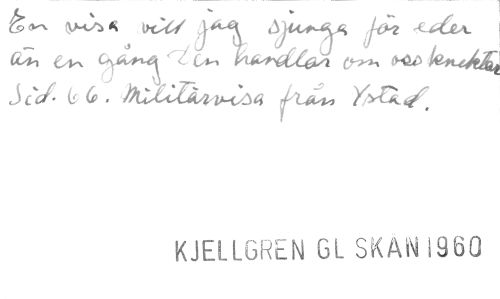 En visa vill jag sjunga för eder
än en gång Den handlar om oss knektar
Sid. 66. Militärvisa från Ystad.
KJELLGREN GL SKÅN 1960